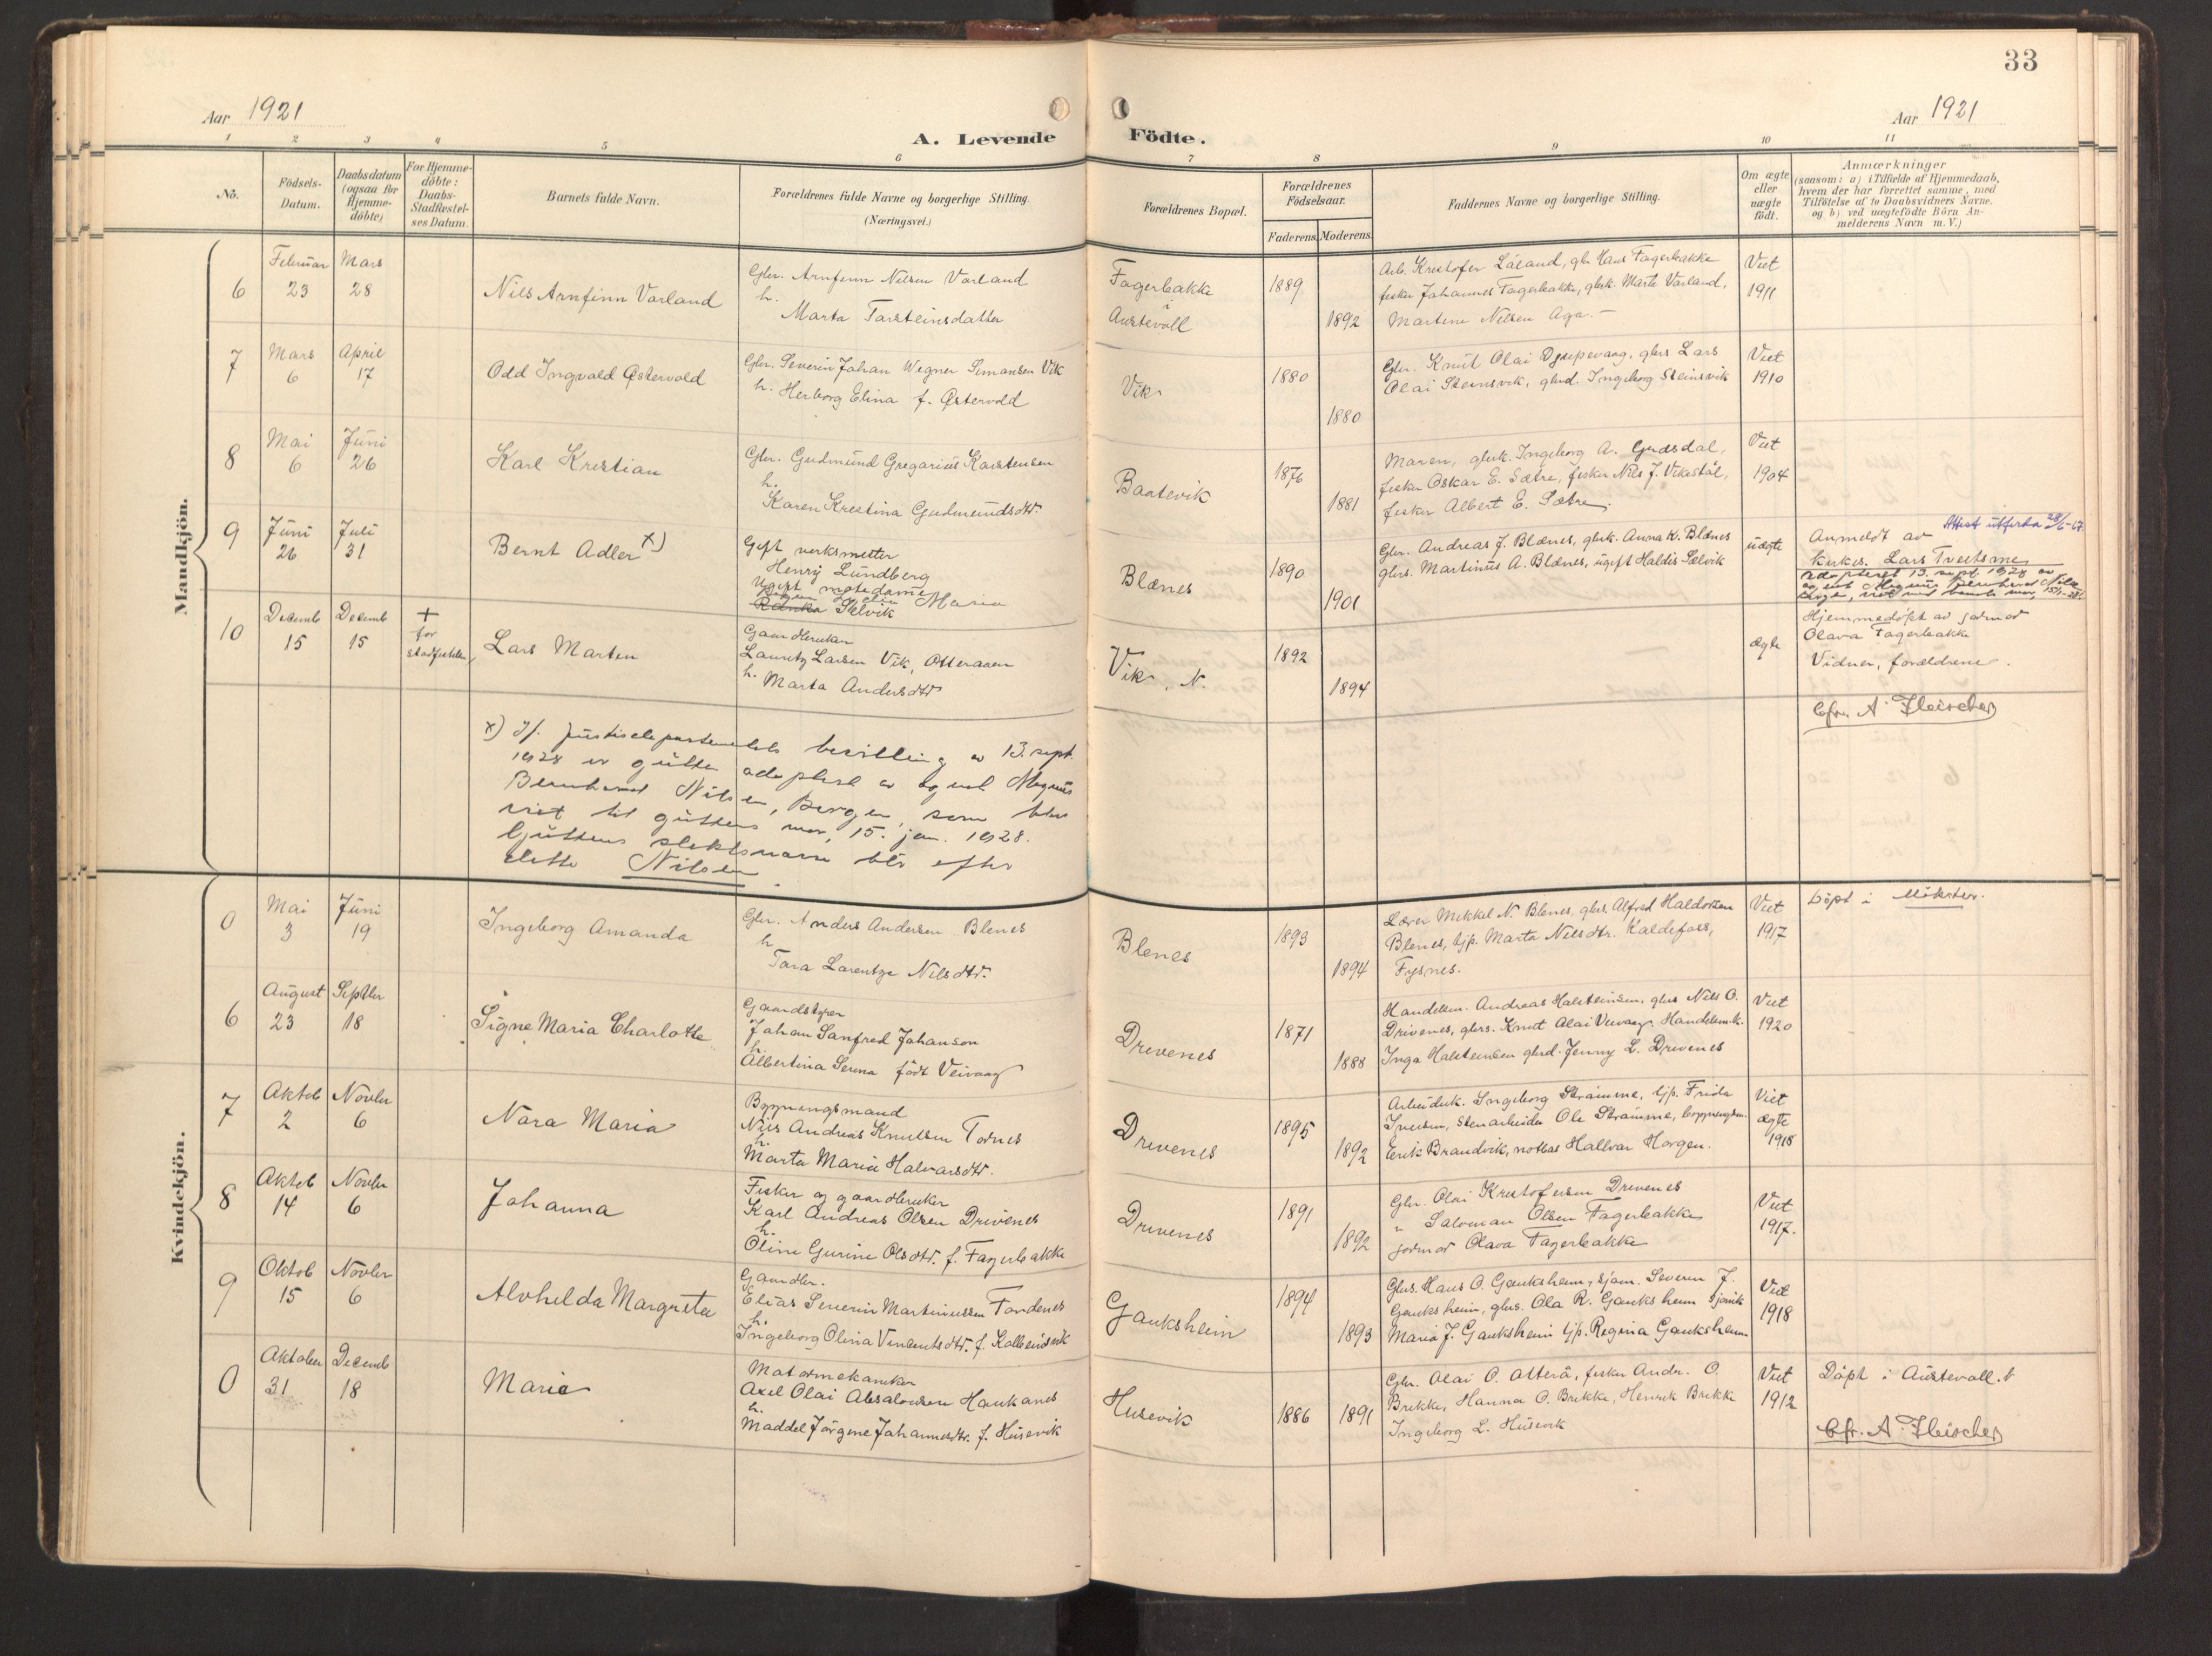 33
Aar 1921
Aar 1921
A. Levende Födte.
1 2 3 4 5 6 7 8 9 10 11
No.
Födsels-
Datum.
Daabsdatum
(ogsaa for
Hjemme-
döbte)
For Hjemme-
döbte:
Daabs-
Stadfæstel-
ses Datum.
Barnets fulde Navn.
Forældrenes fulde Navne og borgerlige Stilling.
(Næringsvei.)
Forældrenes Bopæl.
Forældrenes
Födselsaar.
Faderens. Moderens.
Faddernes Navne og borgerlige Stilling.
Om ægte
eller
uægte
födt.
Anmærkninger
(saasom: a) i Tilfælde af Hjemmedaab,
hvem der har forrettet samme, med
Tilföielse af to Daabsvidners Navne.
og b) ved uægtefödte Börn An-
melderens Navn m. V.)
Mandkjön.
6
Februar 23
Mars 28
Nils Arnfinn Varland
Gbr. Arnfinn Nilsen Varland
h.
Marta Tarsteinsdatter
Fagerbakke
i
Austevoll
1889
1892
Arb. Kristofer Låsand, gbr Hans Fagerbakke
fisker Johannes Fagerbakke, gbrk. Marta Varland,
Martine Nilsen Aga. -
Viet
1911
7
Mars 6
April 17
Odd Ingvald Østervold
Gbr. Severin Johan Wegner Simonsen Vik
h. Herborg Elina f. Østervold
Vik
1880
1880
Gbr. Knut Olai Djupevaag, gbrs Lars
Olai Steinsvik, gbrd. Ingeborg Steinsvik
Viet
1910
8
Mai 6
Juni 26
Karl Kristian
Gbr. Gudmund Gregarius Karstensen
h.
Karen Kristina Gudmundsdtr.
Baatevik
1876
1881
Maren, gbrk. Ingeborg A. Gudsdal,
fisker Oskar E. Sætre, fisker Nils J. Vikastøl,
fisker Albert E. Sætre.
Viet
1904
9
Juni 26
Juli 31
Bernt Adler x)
Gift verksmester
Henry Lundberg
Ugift motedame
Maria
Sælvik
Blænes
1890
1901
Gbr. Andreas J. Blænes, gbrk. Anna K. Blænes
gbrs. Martinus A. Blænes, ugift Haldis Sælvik
uægte
Attest utferda 28/6-67.
Anmeldt av
kirkes. Lars Tveitsme
Adoptert 13. sept. 1928 av
10
Decemb 15
Decemb 15
+
før
stadfestelsen
Lars Marten
Gaardbruker
Lauritz Larsen Vik, Otteraaen
h. Marta Andersdtr
Vik, N.
1892
1894
ægte
Hjemmedöpt av jormor
Olava Fagerbakke
Vidner, forældrene.
Cfr. A. Fleischer
x) If. justisdepartementets bevilling av 13. sept.
1928 er gutten adoptert av agent Magnus
Bernhard Nilsen, Bergen, som blev
viet til guttens mor, 15. jan. 1928.
Guttens slektsnavn blir efter
dette Nilsen.
Kvindekjön.
0
Mai 3
Juni 19
Ingeborg Amanda
Gbr. Anders Andersen Blenes
h
Tara Larentze Nilsdtr.
Blenes
1893
1894
Lærer Mikkel N. Blenes, gbrs. Alfred Haldorsen
Blenes, tjp. Marta Nilsdtr. Kaldefoss,
Fysnes.
Viet
1917
Döpt i Møkster.
6
August 23
Septbr 18
Signe Maria Charlotte
Gaardstyrer
Johan Sanfred Johanson
h.
Albertina Serina födt Veivaag
Drevenes
1871
1888
Handelsm. Andreas Halsteinsen, gbrs Nils O.
Drivenes, gbrs. Knut Olai Veivaag, Handelsmk.
Inga Halsteinsen gbrd. Jenny L. Drivenes
Viet
1920
7
Aktob 2
Novbr 6
Nora Maria
Bygningsmand
Nils Andreas Knutsen Tornes
h.
Marta Maria Halvarsdtr.
Drivenes
1895
1892
Arbeiderk. Ingeborg Strämme, tjp. Frida
Iversen, stenarbeider Ole Strämme, bygningsm.
Erik Brandvik, notbas Hallvar Horgen.
Viet
ægte
1918
8
Aktob 14
Novbr 6
Johanna
Fisker og gaardbruker
Karl Andreas Olsen Drivenes
h.
Oline Gurine Olsdtr. f. Fagerbakke
Drivenes
1891
1892
Gbr. Olai Kristofersen Drivenes
" Salomon Olsen Fagerbakke
jormor Olava Fagerbakke
Viet
1917.
9
Oktob 15
Novbr 6
Alvhelda Margreta
Gaardbr.
Elias Severin Martinussen Tordenes
h.
Ingeborg Olina Vincentsdtr. f. Kalbeinsvik
Gauksheim
1894
1893
Gbrs. Hans O. Gauksheim, sjöm. Severin J.
Gauksheim, gbrs. Ola R. Gauksheim sjömk
Maria J. Gauksheim tjp. Regina Gauksheim
Viet
1918
0
Aktober 31
Decemb 18
Maria
Motormekaniker
Axel Olai Absalonsen Haukanes
h.
Maddel Jörgine Johannesdtr. f. Husevik
Husevik
1886
1891
Gbr. Olai O. Otterå, fisker Andr. O.
Brekke, Hanna O. Brekke, Henrik Brekke
Ingeborg L. Husevik
Viet
1912
Döpt i Austevoll.
Cfr. A. Fleischer